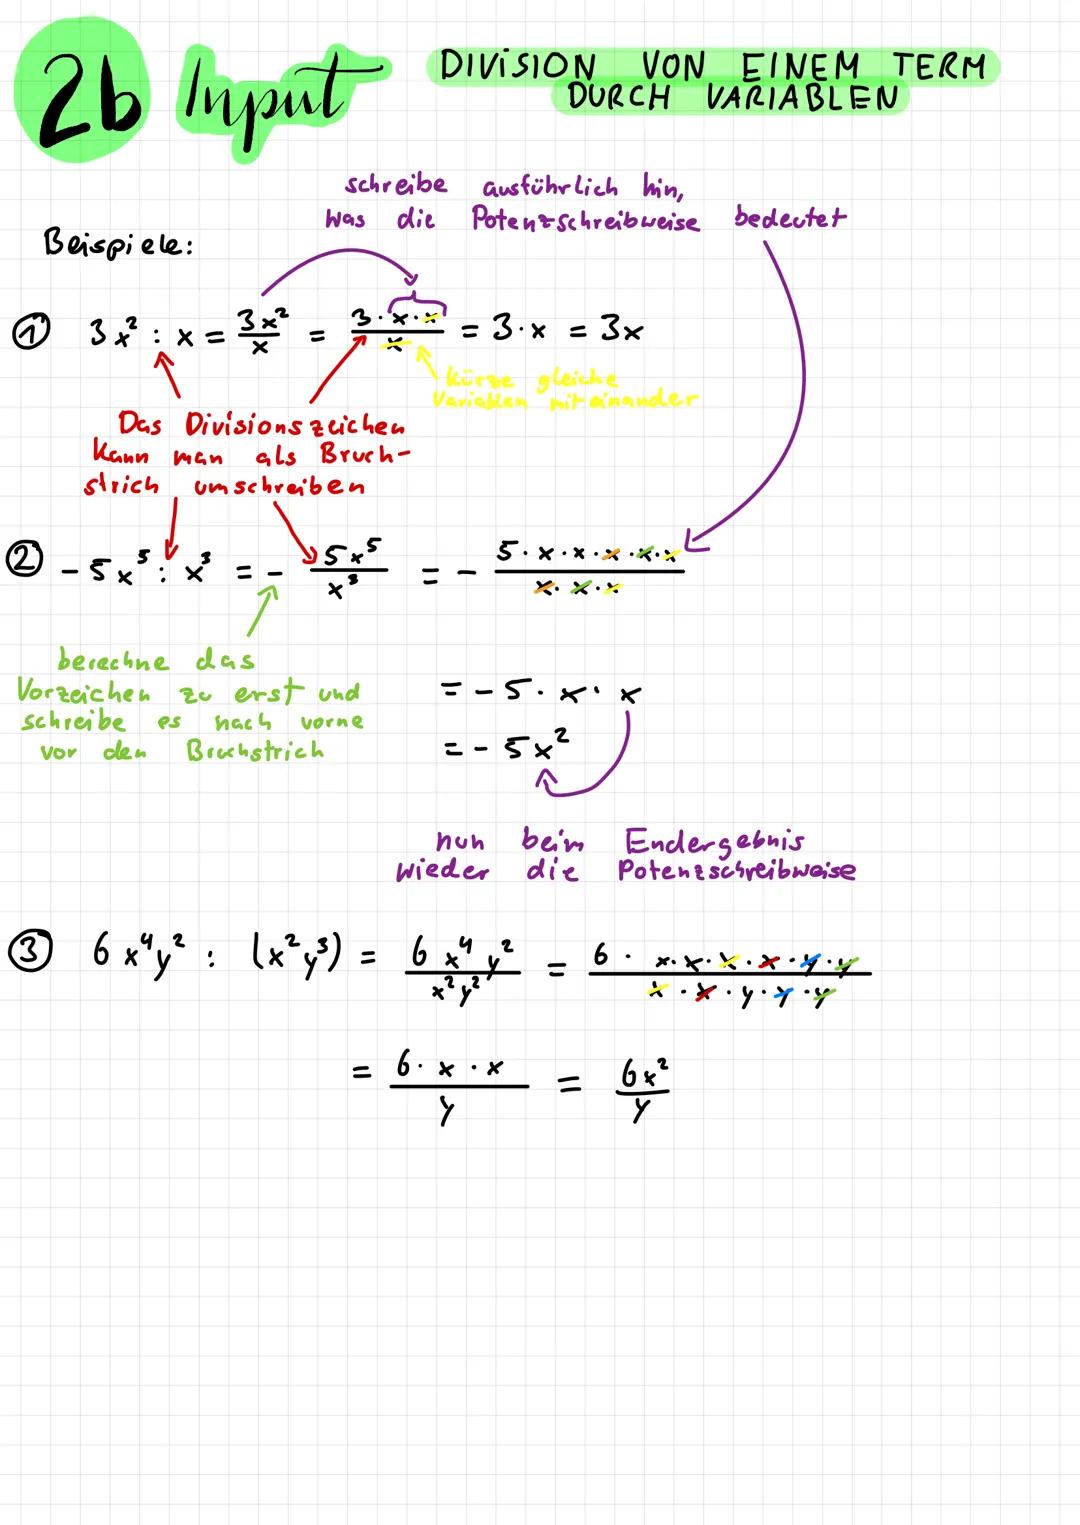 2b Input
DIVISION VON EINEM TERM
DURCH VARIABLEN
schreibe ausführlich hin,
was die Potenzschreibweise bedeutet
Beispiele:
① 3x² : x = 3x²/x = 3·x·x/x = 3·x = 3x
kürze gleiche
Variablen miteinander
Das Divisionszeichen
kann man als Bruch-
strich umschreiben
② -5x⁵ : x³ = - 5x⁵/x³ = - 5·x·x·x·x·x/x·x·x
berechne das
Vorzeichen zu erst und
schreibe es nach vorne
vor den Bruchstrich
= -5·x·x
= -5x²
nun beim Endergebnis
wieder die Potenzschreibweise
③ 6x⁴y² : (x²y³) = 6x⁴y²/x²y² = 6·x·x·x·x·y·y/x·x·y·y·y
= 6·x·x/y = 6x²/y